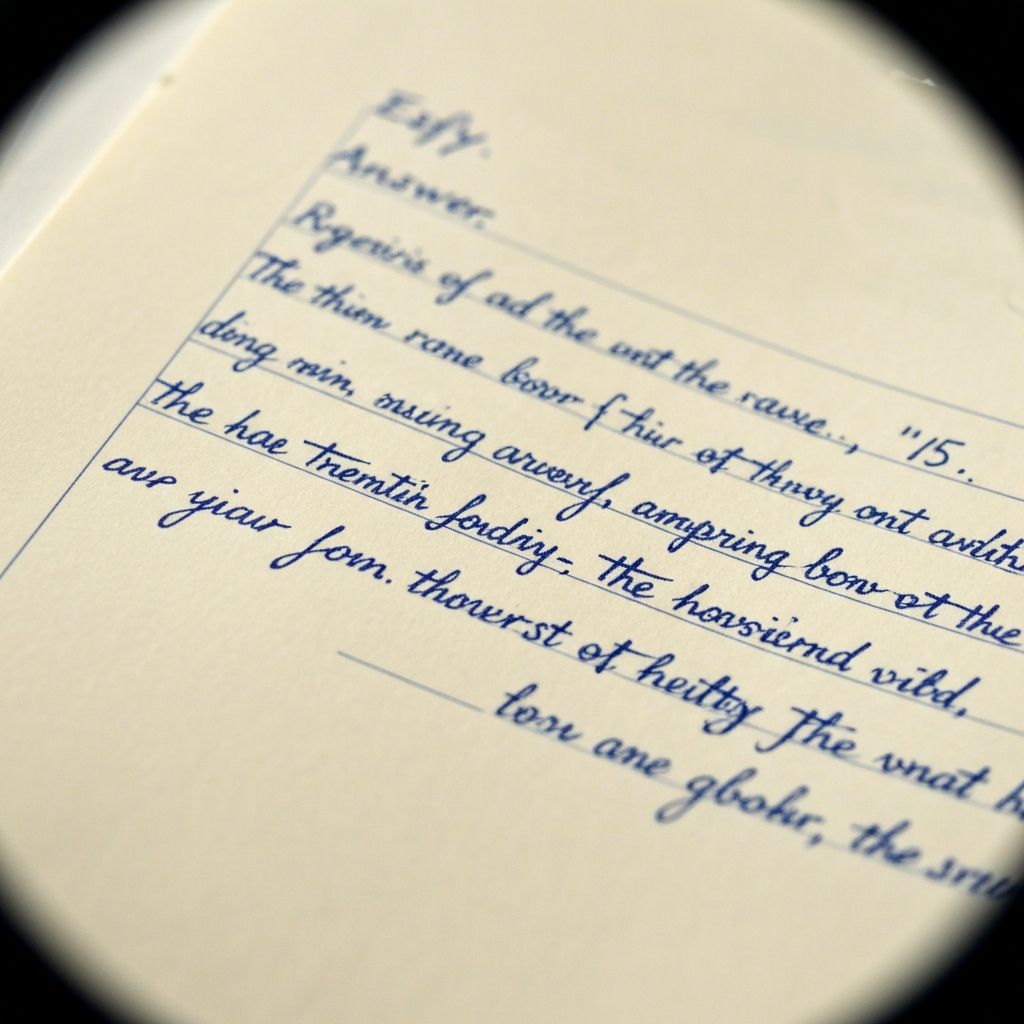 Esfy.
Answer.
Rogeviris of ad the unt the rave..., "15..
The thim rane boor f hir of thnvy ont
ding min, msuing arwerf, ampring bow ot the
the hae Tremtin fordiy-. the hovsiernd vibd,
avr yiaw fom. thowrst of heitty The vnat
torn ane gbohr, the